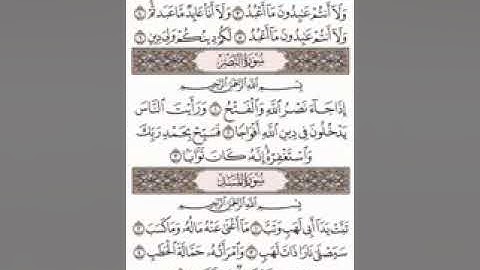 وَلَآ أَنتُمْ عَٰبِدُونَ مَآ أَعْبُدُ ٣ وَلَآ أَنَا۠ عَابِدٌ مَّا عَبَدتُّمْ ٤
وَلَآ أَنتُمْ عَٰبِدُونَ مَآ أَعْبُدُ ٥ لَكُمْ دِينُكُمْ وَلِيَ دِينِ ٦
سُورَةُ النَّصْرِ
بِسْمِ ٱللَّهِ ٱلرَّحْمَٰنِ ٱلرَّحِيمِ
إِذَا جَآءَ نَصْرُ ٱللَّهِ وَٱلْفَتْحُ ١ وَرَأَيْتَ ٱلنَّاسَ
يَدْخُلُونَ فِى دِينِ ٱللَّهِ أَفْوَاجًا ٢ فَسَبِّحْ بِحَمْدِ رَبِّكَ
وَٱسْتَغْفِرْهُ إِنَّهُۥ كَانَ تَوَّابًۢا ٣
سُورَةُ المَسَدِ
بِسْمِ ٱللَّهِ ٱلرَّحْمَٰنِ ٱلرَّحِيمِ
تَبَّتْ يَدَآ أَبِى لَهَبٍ وَتَبَّ ١ مَآ أَغْنَىٰ عَنْهُ مَالُهُۥ وَمَا كَسَبَ ٢
سَيَصْلَىٰ نَارًا ذَاتَ لَهَبٍ ٣ وَٱمْرَأَتُهُۥ حَمَّالَةَ ٱلْحَطَبِ ٤